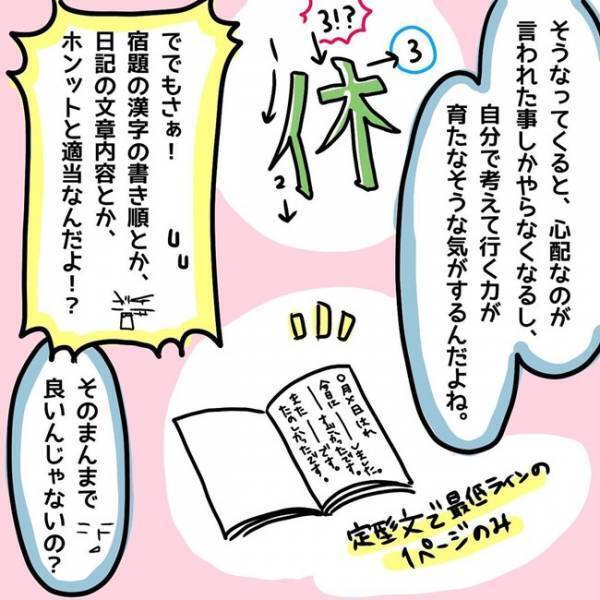 そうなってくると、心配なのが
言われた事しかやらなくなるし、
自分で考えて行く力が
育たなそうな気がするんだよね。
3!?
3
休
2
ででもさぁ!
宿題の漢字の書き順とか、
日記の文章内容とか、
ホンットと適当なんだよ!?
〇月×日はれ
今日は
しました。
すごかったです。
また
です。
たのしかったです。
定型文で最低ラインの
1ページのみ
そのまんまで
良いんじゃないの?